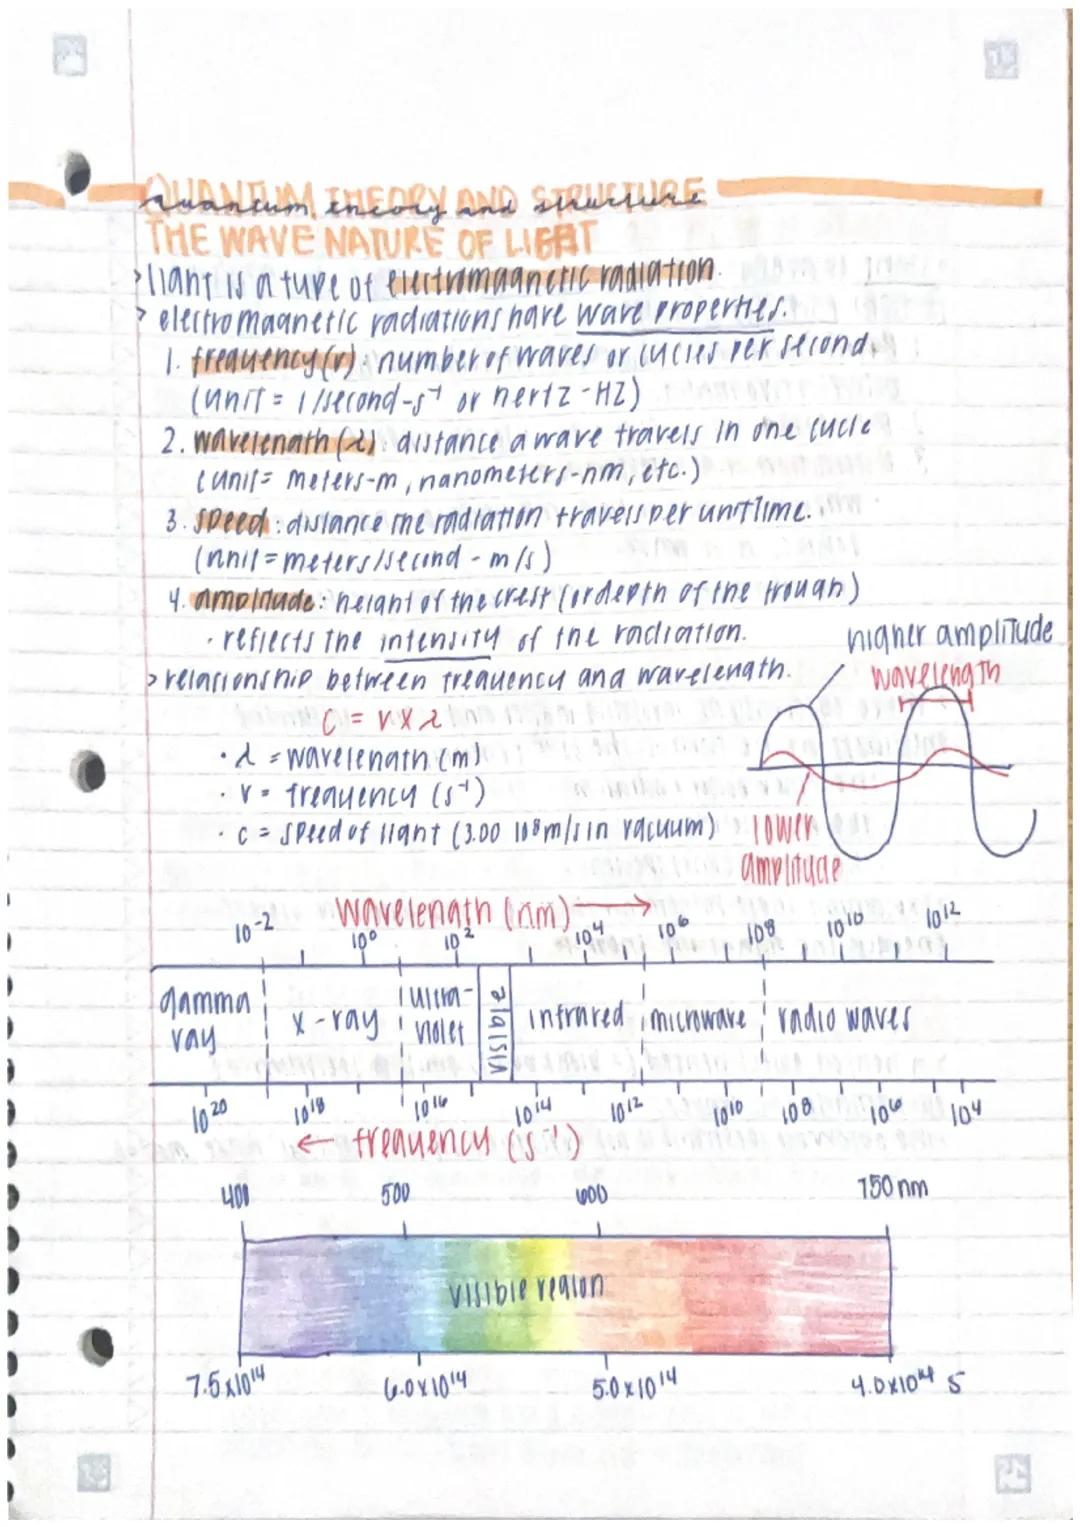 QUANTUM THEORY AND STRUCTURE
quantum theory and structure
THE WAVE NATURE OF LIGHT
> light is a type of electromagnetic radiation.
> electromagnetic radiations have wave properties.
1. frequency (v): number of waves or cycles per second.
(unit = 1/second - s⁻¹ or hertz - HZ)
2. wavelength (λ): distance a wave travels in one cycle
(unit = meters-m, nanometers-nm, etc.)
3. speed: distance the radiation travels per unit time.
(unit = meters/second - m/s)
4. amplitude: height of the crest (or depth of the trough)
· reflects the intensity of the radiation.
higher amplitude
wavelength
> relationship between frequency and wavelength.
c = v x λ
· λ = wavelength (m)
· v = frequency (s⁻¹)
· c = speed of light (3.00 10⁸ m/s in vacuum)
lower
amplitude
wavelength (nm) →
10⁻² 10⁰ 10² 10⁴ 10⁶ 10⁸ 10¹⁰ 10¹²
gamma ray
x-ray
ultra-violet
visible
infrared
microwave
radio waves
10²⁰ 10¹⁸ 10¹⁶ 10¹⁴ 10¹² 10¹⁰ 10⁸ 10⁶ 10⁴
← frequency (s⁻¹)
400 500 600 750 nm
visible region
7.5x10¹⁴ 6.0x10¹⁴ 5.0x10¹⁴ 4.0x10¹⁴ s